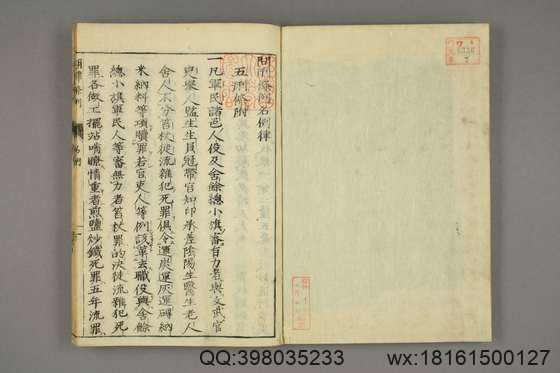 問刑條例名例律
五刑條附
一凡軍民諸色人役及舍餘總小旗審有力者與文武官
吏舉人監生生員冠帶官知印承差陰陽生醫生老人
舍人不分笞杖徒流雜犯死罪俱令運炭運灰運磚納
米納料等項贖罪若官吏人等例該革去職役與舍餘
總小旗軍民人等審無力者笞杖罪的決徒流雜犯死
罪各做工擺站哨瞭情重者煎鹽炒鐵死罪五年流罪
QQ:398035233
wx:18161500127